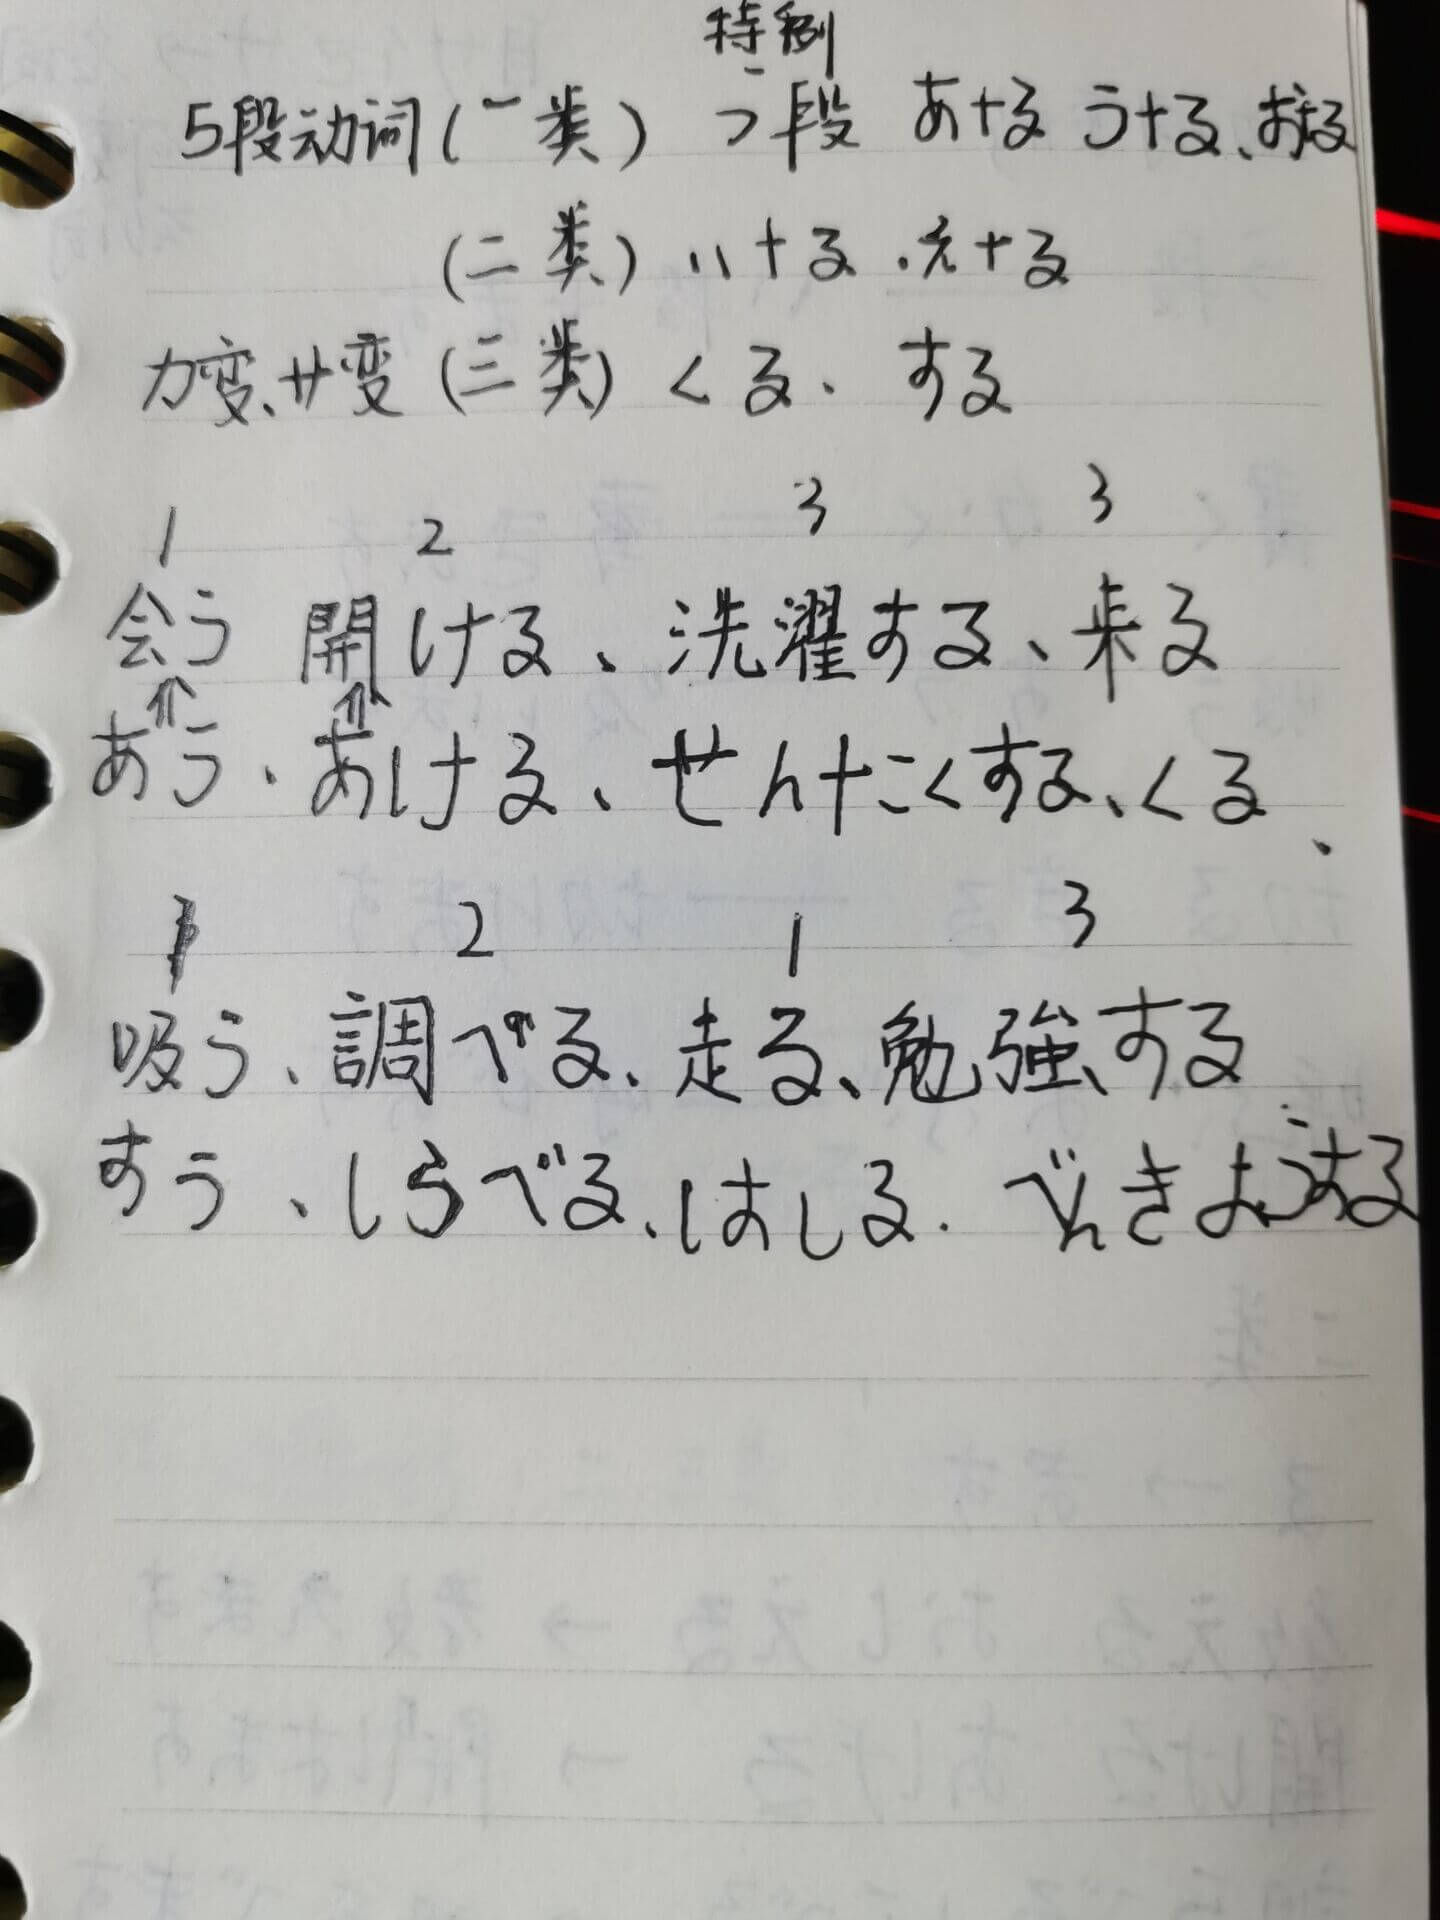 特例
5段动词(一类) う段 あ+る う+る、お+る
(二类) い+る、え+る
カ变、サ变 (三类) くる、する
1 2 3 3
会う 開ける、洗濯する、来る
あう、あける、せんたくする、くる、
1 2 1 3
吸う、調べる、走る、勉強する
すう、しらべる、はしる、べんきょうする